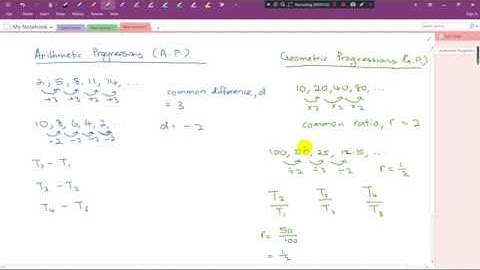 My Notebook
Arithmetic Progressions (A.P.)
2, 5, 8, 11, 14, ...
+3 +3 +3 +3
common difference, d
= 3
10, 8, 6, 4, 2, ...
-2 -2 -2 -2
d = -2
T₂ - T₁
T₃ - T₂
T₄ - T₃
Geometric Progressions (G.P.)
10, 20, 40, 80, ...
x2 x2 x2
common ratio, r = 2
100, 50, 25, 12.5, ...
÷2 ÷2 ÷2
r = 1/2
T₂/T₁ T₃/T₂ T₄/T₃
r = 50/100
= 1/2